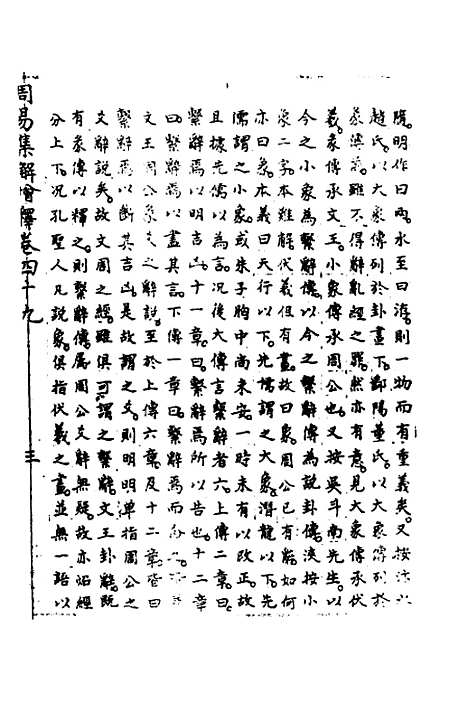 周易集解會釋卷四十九 三
隔明作曰兩水至曰洊則一物而有重義矣又按
趙氏以大象傳列於卦畫下鄱陽董氏以大象傳列於
彖傳爲雖不得辭亂經之罪然亦有意見大象傳承伏
羲彖傳承文王小象傳承周公也又按吳斗南先生以
今之小象為繫辭傳以今之繫辭傳為說卦傳淡按小
象二字本難解伏羲但有畫故曰象周公已有辭如何
亦曰象本義曰天行以下先儒謂之大象潛龍以下先
儒謂之小象或朱子胸中尚未安一時未有以改正故
且據先儒以為言況後大傳言繫辭者六上傳二章曰
繫辭焉以明吉凶十一章曰繫辭焉所以告也十二章
曰繫辭焉以盡其言下傳一章曰繫辭焉而命之
文王周公彖爻之辭說至於上傳六章及十二章皆曰
繫辭焉以斷其吉凶是故謂之爻則明明單指周公之
爻辭說矣故文周之經雖俱可謂之繫辭文王卦辭既
有彖傳以釋之則繫辭傳屬周公爻辭無疑故亦沿經
分上下況孔聖人凡說象俱指伏羲之畫並無一語以